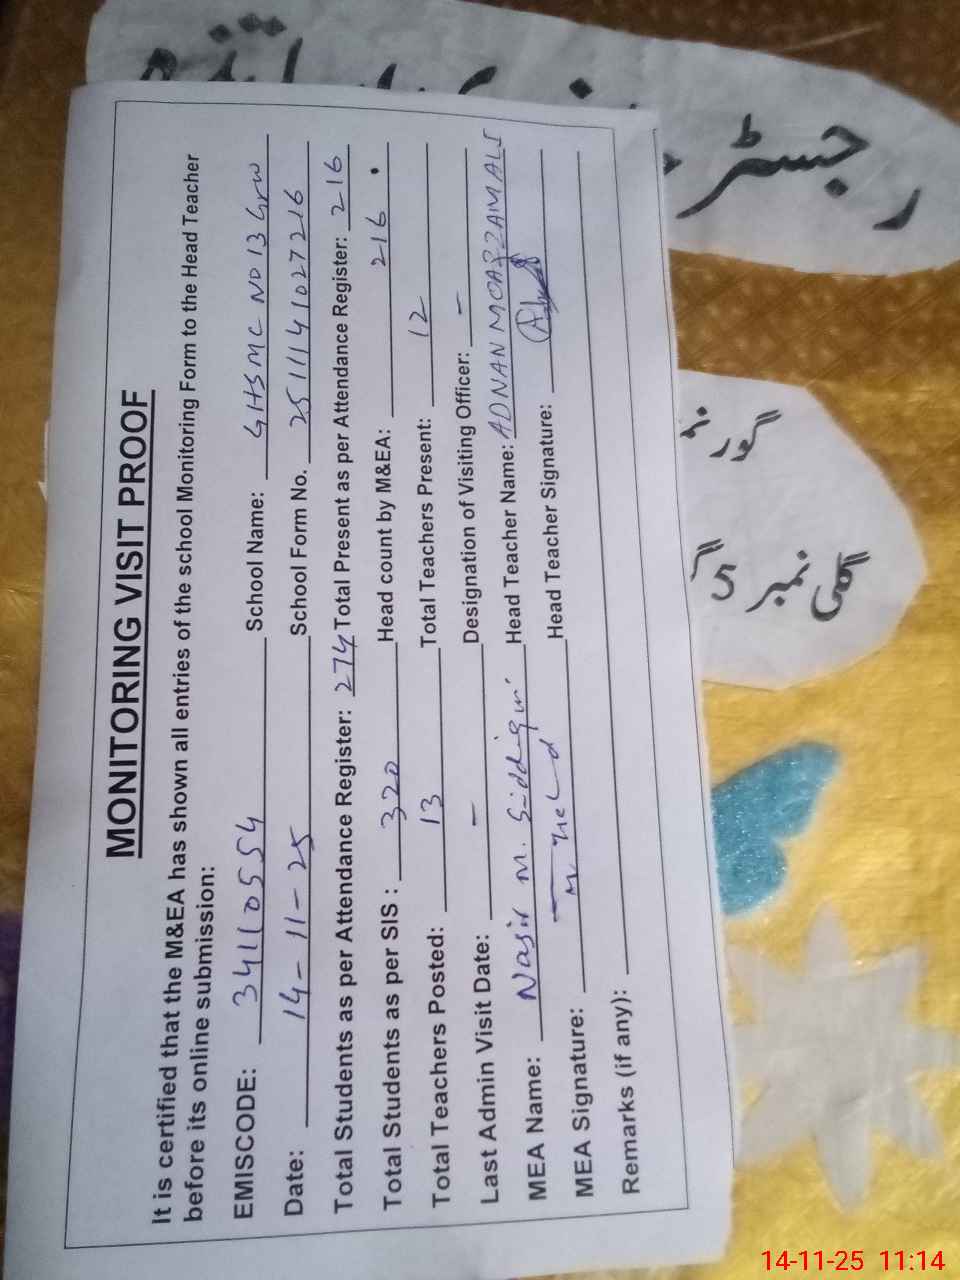 رجسٹر
گورنم
گلی نمبر 5 گ
MONITORING VISIT PROOF
It is certified that the M&EA has shown all entries of the school Monitoring Form to the Head Teacher
before its online submission:
EMISCODE: 34110554 School Name: GHSMC NO 13 Grw
Date: 14-11-25 School Form No. 2511141027216
Total Students as per Attendance Register: 274 Total Present as per Attendance Register: 216
Total Students as per SIS : 320 Head count by M&EA: 216
Total Teachers Posted: 13 Total Teachers Present: 12
Last Admin Visit Date: - Designation of Visiting Officer: -
MEA Name: Nasir M. Siddiqui Head Teacher Name: ADNAN MOAZZAM ALI
MEA Signature: Head Teacher Signature:
Remarks (if any):
14-11-25 11:14